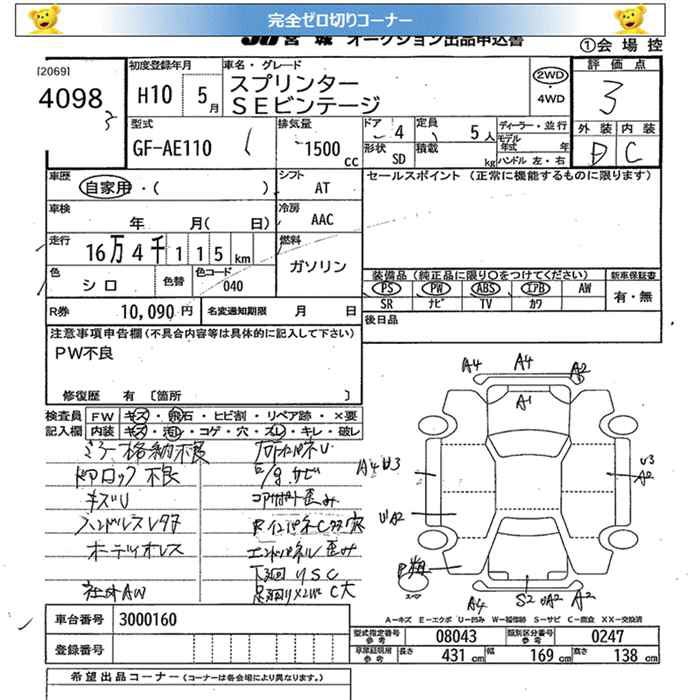 完全ゼロ切りコーナー
JU 宮城 オークション出品申込書
①会場控
[2069]
4098
3
初度登録年月
H10 5月
車名・グレード
スプリンター
SEビンテージ
2WD
・4WD
評価点
3
外装 内装
D C
型式
GF-AE110
排気量
1500 cc
ドア 4
形状 SD
定員 5人
積載 kg
ディーラー・並行
モデル年式 年
ハンドル 左・右
車歴
自家用・( )
シフト AT
セールスポイント (正常に機能するものに限ります)
車検
年 月( 日)
冷房 AAC
走行
16万4千115km
燃料
ガソリン
色 シロ
色替
色コード 040
装備品(純正品に限り○をつけてください)
新車保証書
PS PW ABS エアB AW
SR ナビ TV カワ
有・無
R券 10,090円
名変通知期限 月 日
後日品
注意事項申告欄(不具合内容等は具体的に記入して下さい)
PW不良
修復歴 有 〔箇所 〕
検査員記入欄
FW キズ・飛石・ヒビ割・リペア跡・×要
内装 キズ・汚レ・コゲ・穴・スレ・キレ・破レ
ミラー格納不良
ドアロック不良
キズU
ハンドルスレタタ
社外AW
下廻りSC
A4 A4 A2
A1
A4 U3
U3
A2
A2
A4 S2 UA2 A2
スペア
A-キズ E-エクボ U-凹み W-補修跡 S-サビ C-腐食 XX-交換済
車台番号 3000160
登録番号
型式指定番号 参考 08043
類別区分番号 参考 0247
車庫証明用 参考 長さ 431 cm 幅 169 cm 高さ 138 cm
希望出品コーナー (コーナーは各会場により異なります。)